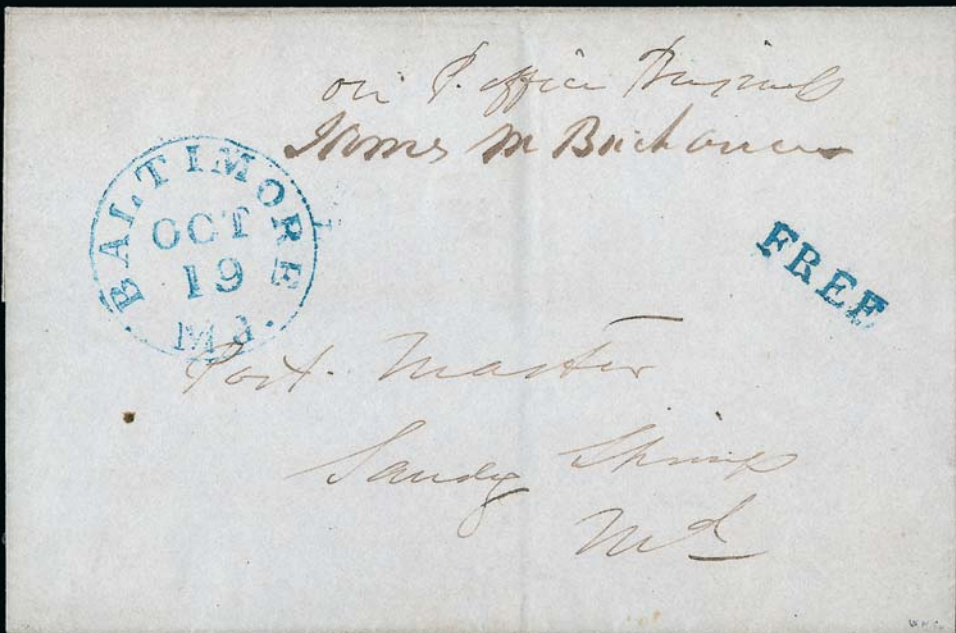 on P. office Business
James M Buchanan
BALTIMORE
OCT
19
Md.
FREE
Post. Master
Sandy Springs
Md